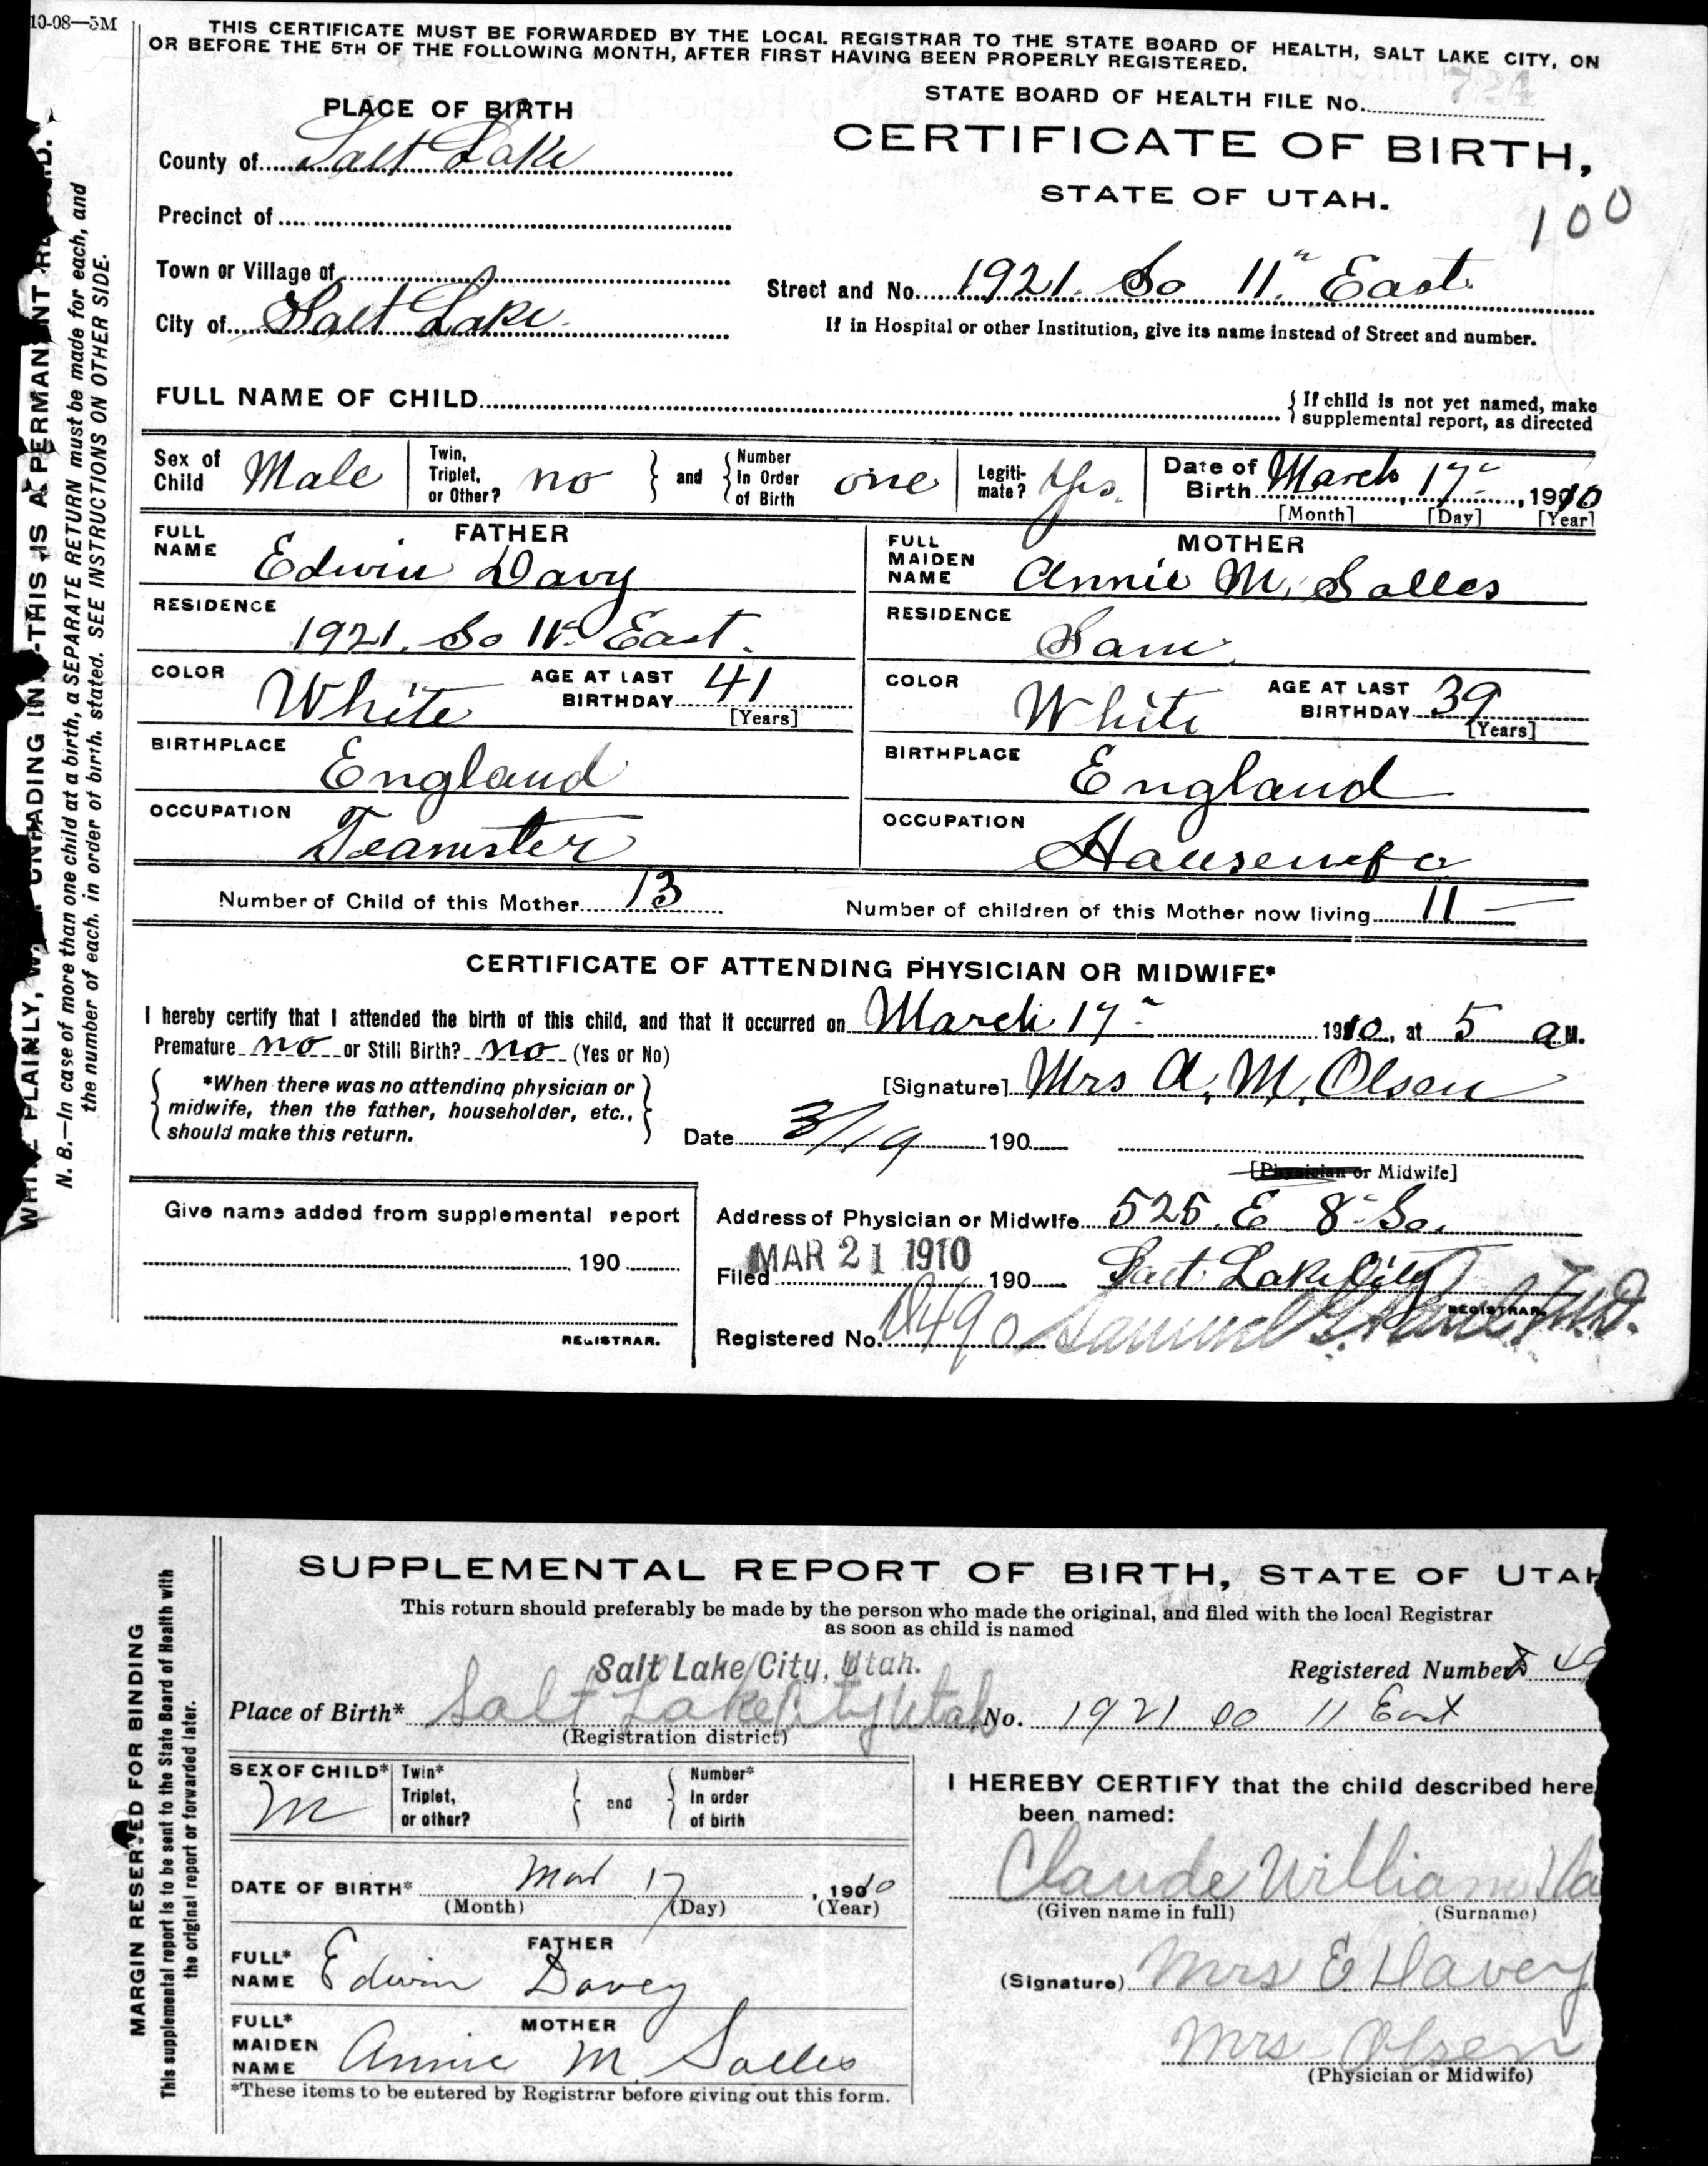 10-08—5M
THIS CERTIFICATE MUST BE FORWARDED BY THE LOCAL REGISTRAR TO THE STATE BOARD OF HEALTH, SALT LAKE CITY, ON
OR BEFORE THE 5TH OF THE FOLLOWING MONTH, AFTER FIRST HAVING BEEN PROPERLY REGISTERED.
STATE BOARD OF HEALTH FILE No. 724
PLACE OF BIRTH
CERTIFICATE OF BIRTH,
STATE OF UTAH.
100
County of Salt Lake
Precinct of
Town or Village of
City of Salt Lake
Street and No. 1921. So 11" East
If in Hospital or other Institution, give its name instead of Street and number.
FULL NAME OF CHILD
{ If child is not yet named, make
supplemental report, as directed
Sex of Child Male
Twin, Triplet, or Other? no } and { Number In Order of Birth one
Legiti-mate? Yes.
Date of Birth March 17", 1910
[Month] [Day] [Year]
FATHER
FULL NAME Edwin Davy
RESIDENCE
1921. So 11" East.
COLOR White AGE AT LAST BIRTHDAY 41 [Years]
BIRTHPLACE England
OCCUPATION Teamster
MOTHER
FULL MAIDEN NAME Annie M. Salles
RESIDENCE
Same
COLOR White AGE AT LAST BIRTHDAY 39 [Years]
BIRTHPLACE England
OCCUPATION Housewife
Number of Child of this Mother 13 Number of children of this Mother now living 11 —
CERTIFICATE OF ATTENDING PHYSICIAN OR MIDWIFE*
I hereby certify that I attended the birth of this child, and that it occurred on March 17" 1910, at 5 a M.
Premature no or Still Birth? no (Yes or No)
{ *When there was no attending physician or
midwife, then the father, householder, etc.,
should make this return. }
[Signature] Mrs A. M. Olsen
Date 3/19 190
[Physician or Midwife]
Give name added from supplemental report
190
REGISTRAR.
Address of Physician or Midwife 525. E 8" So.
Salt Lake City
Filed MAR 21 1910 190
REGISTRAR.
Registered No. 490 Samuel G.
M.D.
THIS IS A PERMANENT
N. B.—In case of more than one child at a birth, a SEPARATE RETURN must be made for each, and
the number of each, in order of birth, stated. SEE INSTRUCTIONS ON OTHER SIDE.
SUPPLEMENTAL REPORT OF BIRTH, STATE OF UTAH
This return should preferably be made by the person who made the original, and filed with the local Registrar
as soon as child is named
Salt Lake City, Utah.
Registered Number 49
Place of Birth* Salt Lake City Utah No. 1921 so 11 East
(Registration district)
SEX OF CHILD* M
Twin* Triplet, or other? } and { Number* In order of birth
DATE OF BIRTH* Mar 17, 1910
(Month) (Day) (Year)
FATHER
FULL* NAME Edwin Davey
MOTHER
FULL* MAIDEN NAME Annie M. Salles
*These items to be entered by Registrar before giving out this form.
I HEREBY CERTIFY that the child described here
been named:
Claude William Da
(Given name in full) (Surname)
(Signature) Mrs E Davey
Mrs Olsen
(Physician or Midwife)
MARGIN RESERVED FOR BINDING
This supplemental report is to be sent to the State Board of Health with
the original report or forwarded later.